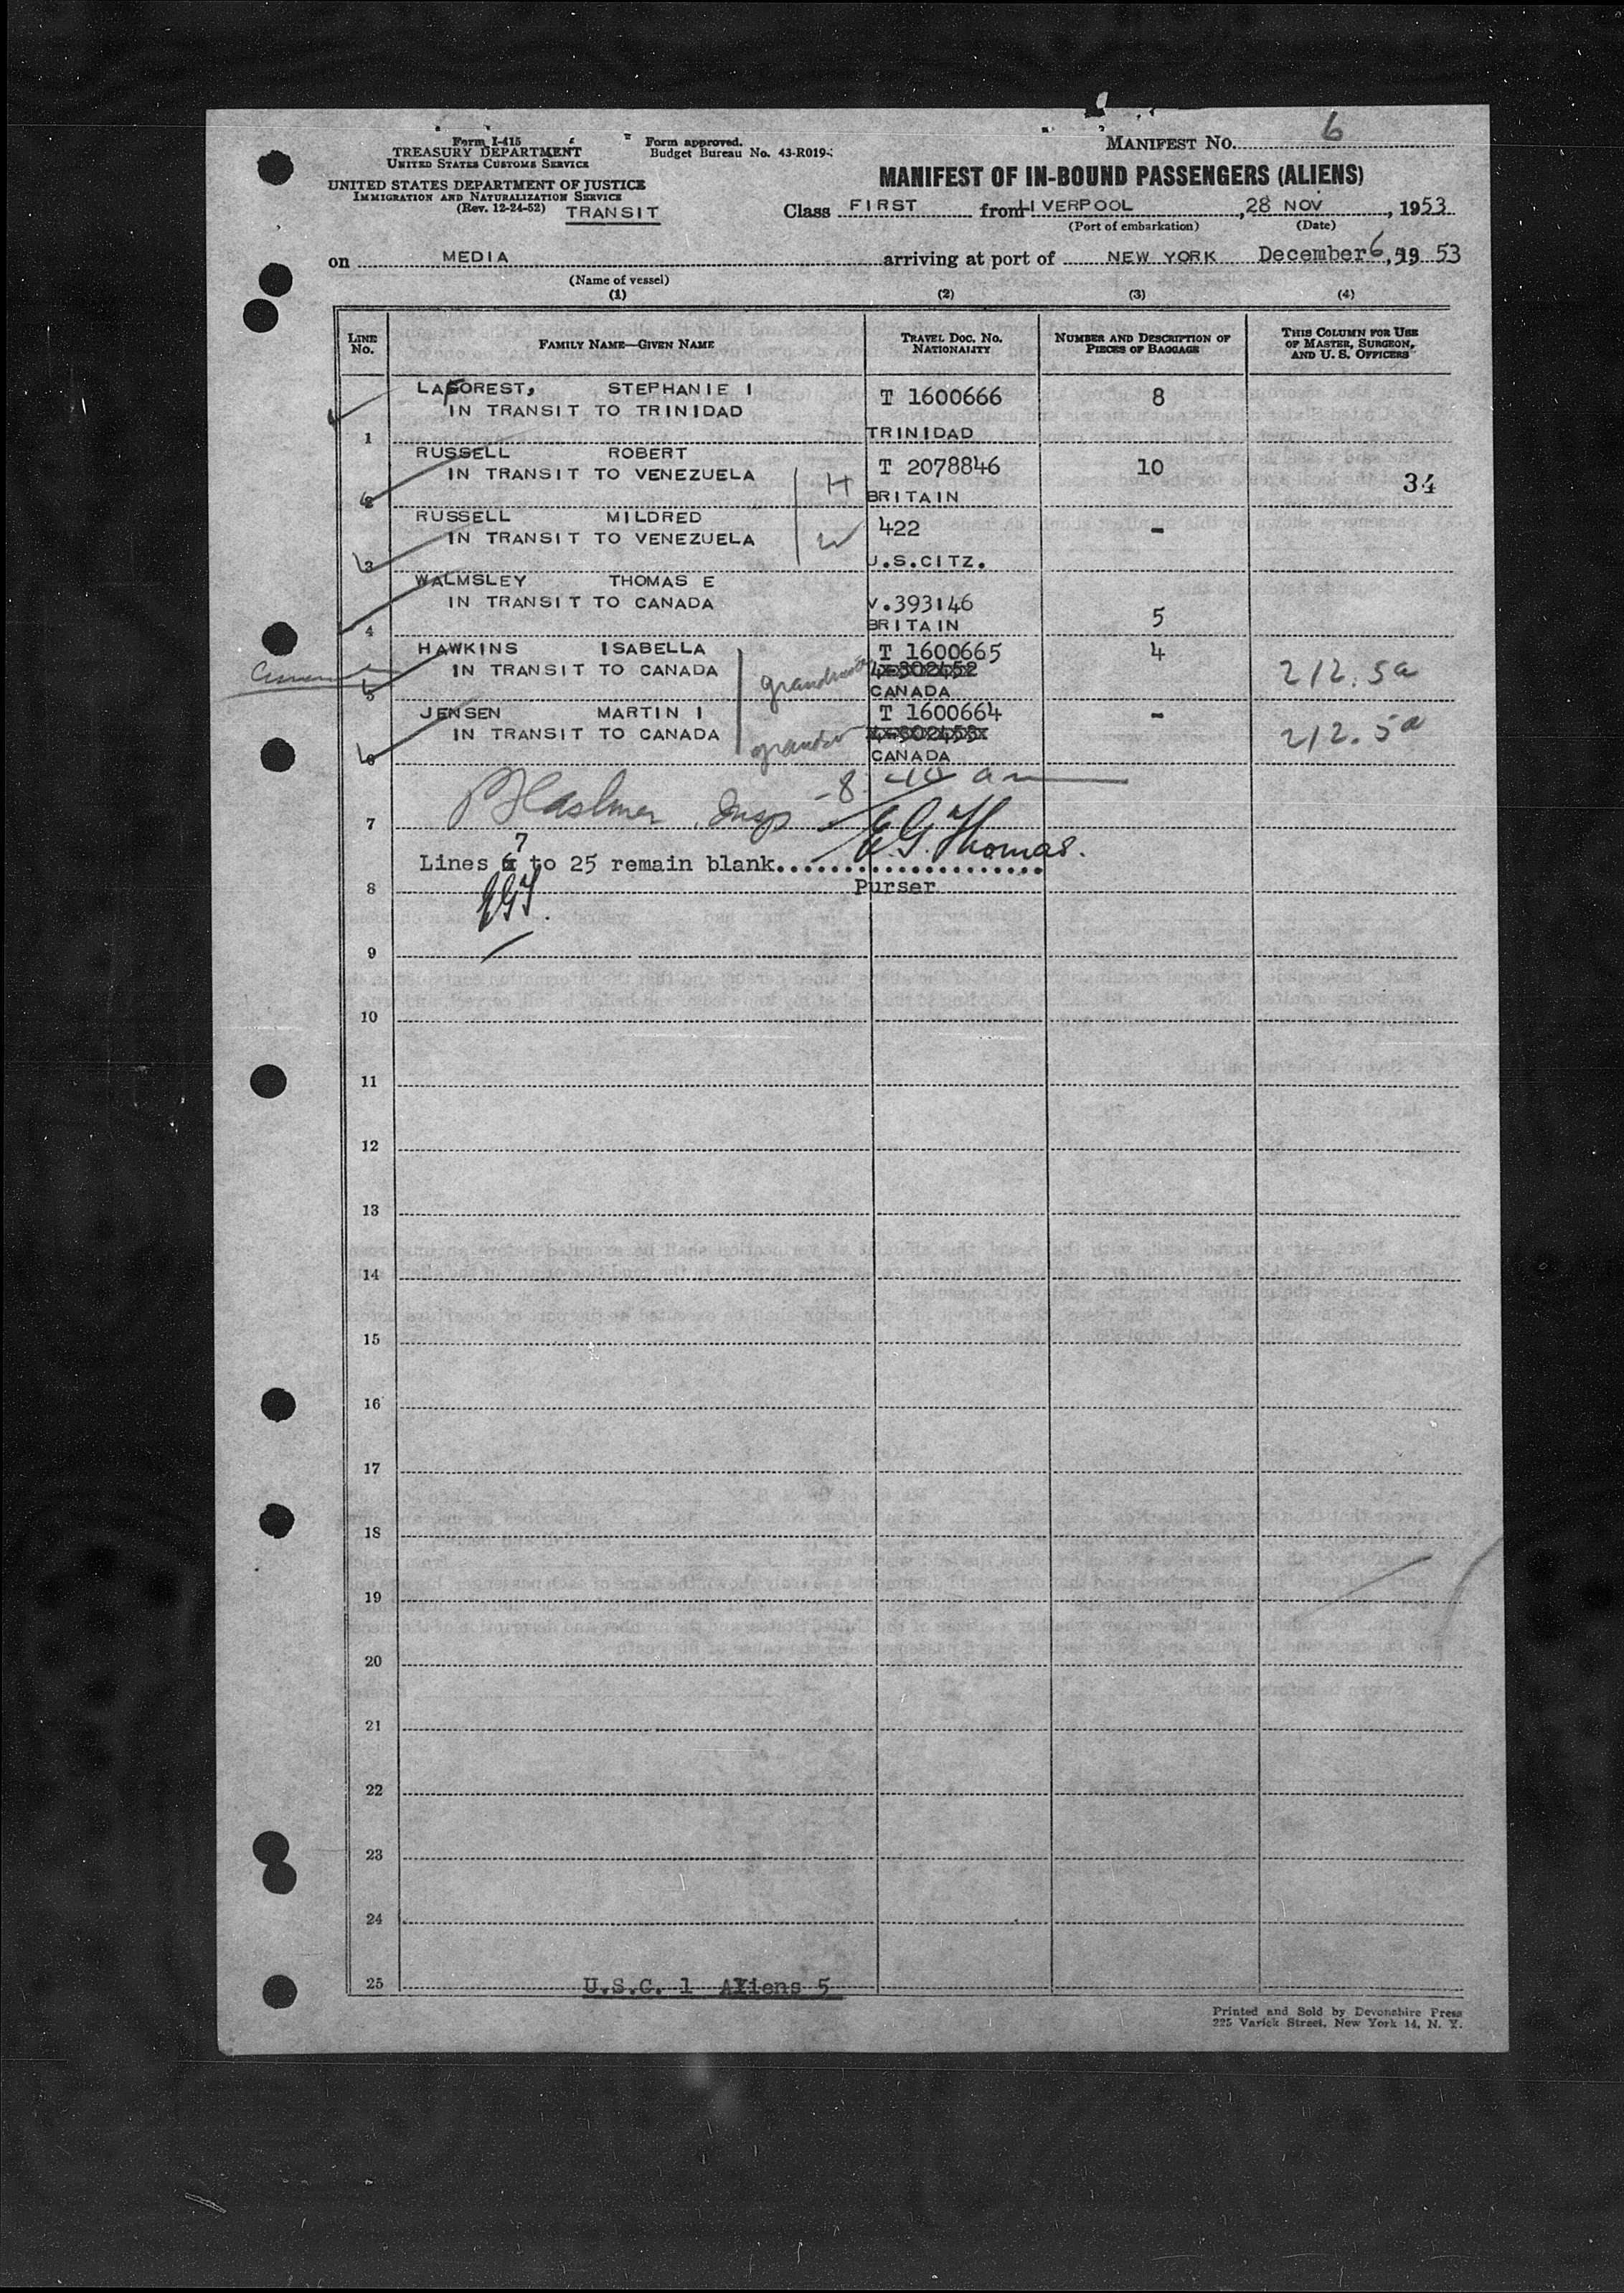 Form I-415
TREASURY DEPARTMENT
UNITED STATES CUSTOMS SERVICE
Form approved.
Budget Bureau No. 43-R019-
MANIFEST No. 6
UNITED STATES DEPARTMENT OF JUSTICE
IMMIGRATION AND NATURALIZATION SERVICE
(Rev. 12-24-52) TRANSIT
MANIFEST OF IN-BOUND PASSENGERS (ALIENS)
Class FIRST from LIVERPOOL, 28 NOV, 1953
(Port of embarkation) (Date)
on MEDIA arriving at port of NEW YORK December 6, 19 53
(Name of vessel)
(1) (2) (3) (4)
LINE No.
FAMILY NAME—GIVEN NAME
TRAVEL DOC. No. NATIONALITY
NUMBER AND DESCRIPTION OF PIECES OF BAGGAGE
THIS COLUMN FOR USE OF MASTER, SURGEON, AND U. S. OFFICERS
LAFOREST, STEPHANIE I T 1600666 8
IN TRANSIT TO TRINIDAD
1 TRINIDAD
RUSSELL ROBERT T 2078846 10
IN TRANSIT TO VENEZUELA H 34
2 BRITAIN
RUSSELL MILDRED 422 -
IN TRANSIT TO VENEZUELA W
3 U.S.CITZ.
WALMSLEY THOMAS E
IN TRANSIT TO CANADA V.393146 5
4 BRITAIN
HAWKINS ISABELLA T 1600665 4
IN TRANSIT TO CANADA grandmother 4-302452 212.5a
5 CANADA
JENSEN MARTIN I T 1600664 -
IN TRANSIT TO CANADA grandson 4-302453 212.5a
6 CANADA
Insp -8 40 am
7
7
Lines 6 to 25 remain blank.................... E.G. Thomas.
8 Purser
EGT.
9
10
11
12
13
14
15
16
17
18
19
20
21
22
23
24
25 U.S.C. 1 Aliens 5
Printed and Sold by Devonshire Press
225 Varick Street, New York 14, N. Y.